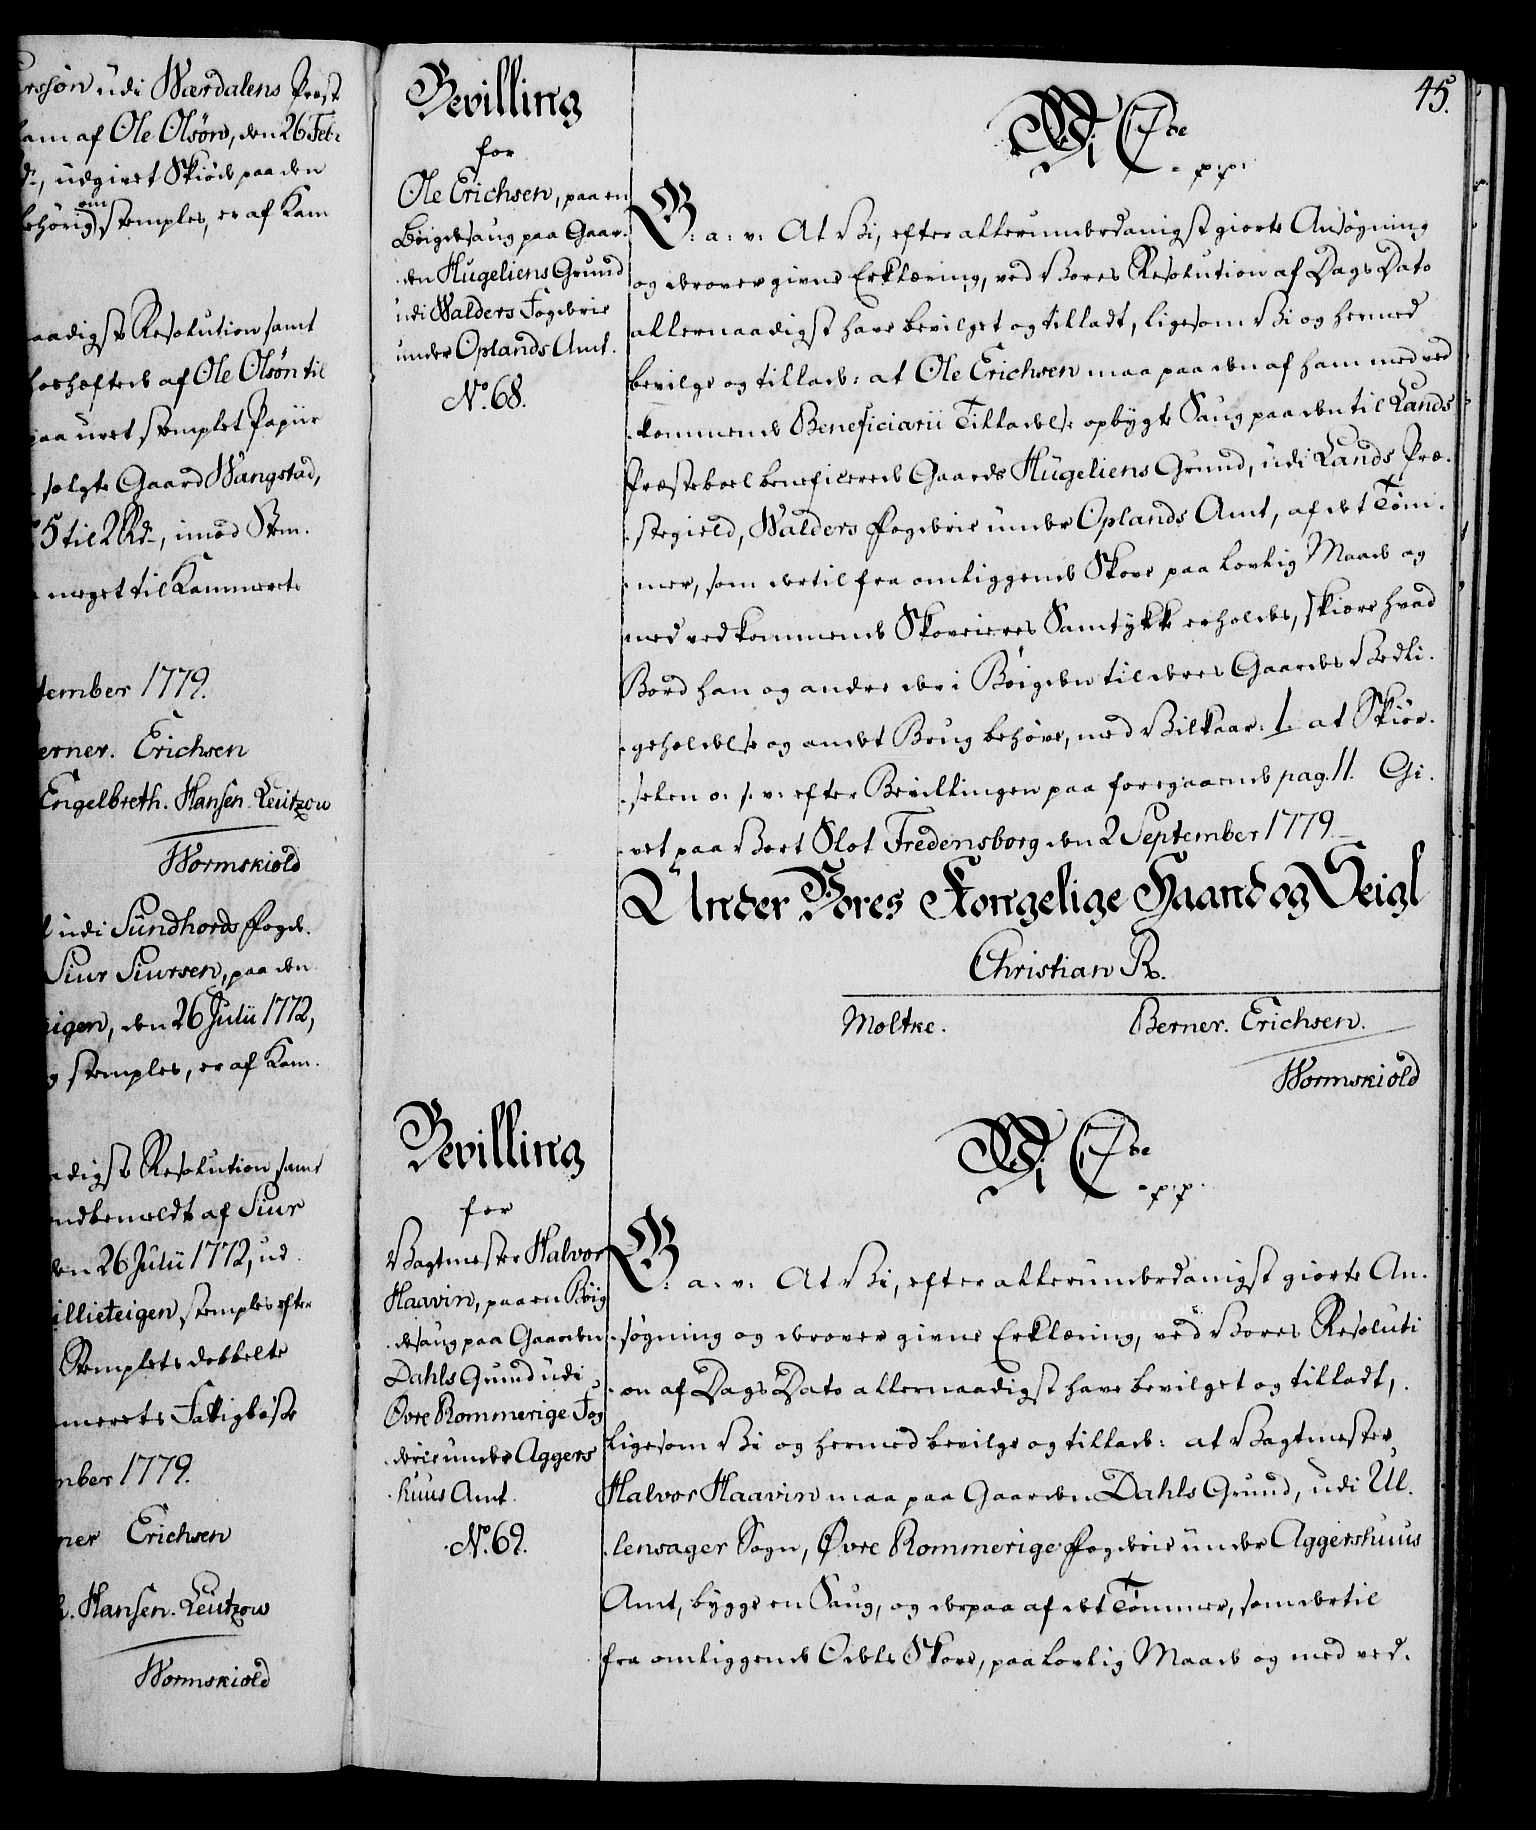 ersøn udi Wærdalens Præst
ham af Ole Olsøn, den 26 Feb:
udgivet Skiøde paa den
behørig om stemples, er af Kam
aadigste Resolution samt
hoshæftede af Ole Olsøn til
paa uret stemplet Papiir
solgte Gaard Wangstad,
5 til 2 Rd, imod Stem.
meget til Kammerets
tember 1779.
erner. Erichsen
Engelbreth. Hansen. Leützow
Wormskiold
udi Sündhords Fogd.
Siur Siursen, paa den
eigen, den 26 Julii 1772,
g stemples, er af Kam.
adigste Resolution samt
ndbemeldte af Siur
den 26 Julii 1772, ud
illieteigen stemples efter
Stemplets dobbelte
merets Fattigbøsse
mber 1779.
ner Erichsen
h. Hansen. Leützow
Wormskiold
45.
Bevilling
for
Ole Erichsen, paa en
Bøigdesaug paa Gaar.
den Hügeliens Grund
udi Walders Fogderie
under Oplands Amt.
No. 68.
Wi C 7de
p.p.
G: a: v: At Vi, efter allerunderdanigst giorte Ansøgning
og derover givne Erklæring, ved Vores Resolution af Dags Dato
allernaadigst have bevilget og tilladt, ligesom Vi og hermed
bevilge og tillade: at Ole Erichsen maa paa den af ham med ved
kommende Beneficiarii Tilladelse opbygte Saug paa den til Lands
Præsteboel beneficerede Gaards Hügeliens Grund, udi Lands Præ.
stegield, Walders Fogderie under Oplands Amt, af det Tøm.
mer, som dertil fra omliggende Skove paa lovlig Maade og
med vedkommende Skoveieres Samtykke erholdes, skiære hvad
Bord han og andre der i Bøigden til deres Gaardes Vedli.
geholdelse og andet Brug behøve, med Vilkaar: 1. at Skiør.
selen o. s. v: efter Bevillingen paa foregaaende pag. 11. Gi.
vet paa Vort Slot Fredensborg den 2 September 1779.
Under Vores Kongelige Haand og Seigl
Christian R.
Moltke. Berner. Erichsen.
Wormskiold
Bevilling
for
Vagtmester Halvor
Haavin, paa en Bøig
desaug paa Gaarden
Dahls Grund udi
Øvre Rommerige Fog
derie under Aggers
huus Amt.
No. 69.
Wi C 7de
p.p.
G: a. v: At Vi, efter allerunderdanigst giorte An.
søgning og derover givne Erklæring, ved Vores Resoluti
on af Dags Dato allernaadigst have bevilget og tilladt,
ligesom Vi og hermed bevilge og tillade: at Vagtmester
Halvor Haavin maa paa Gaarden Dahls Grund, udi Ul.
lensager Sogn, Øvre Rommerige Fogderie under Aggershuus
Amt, bygge en Saug, og derpaa af det Tømmer, som dertil
fra omliggende Odels Skove, paa lovlig Maade og med ved.